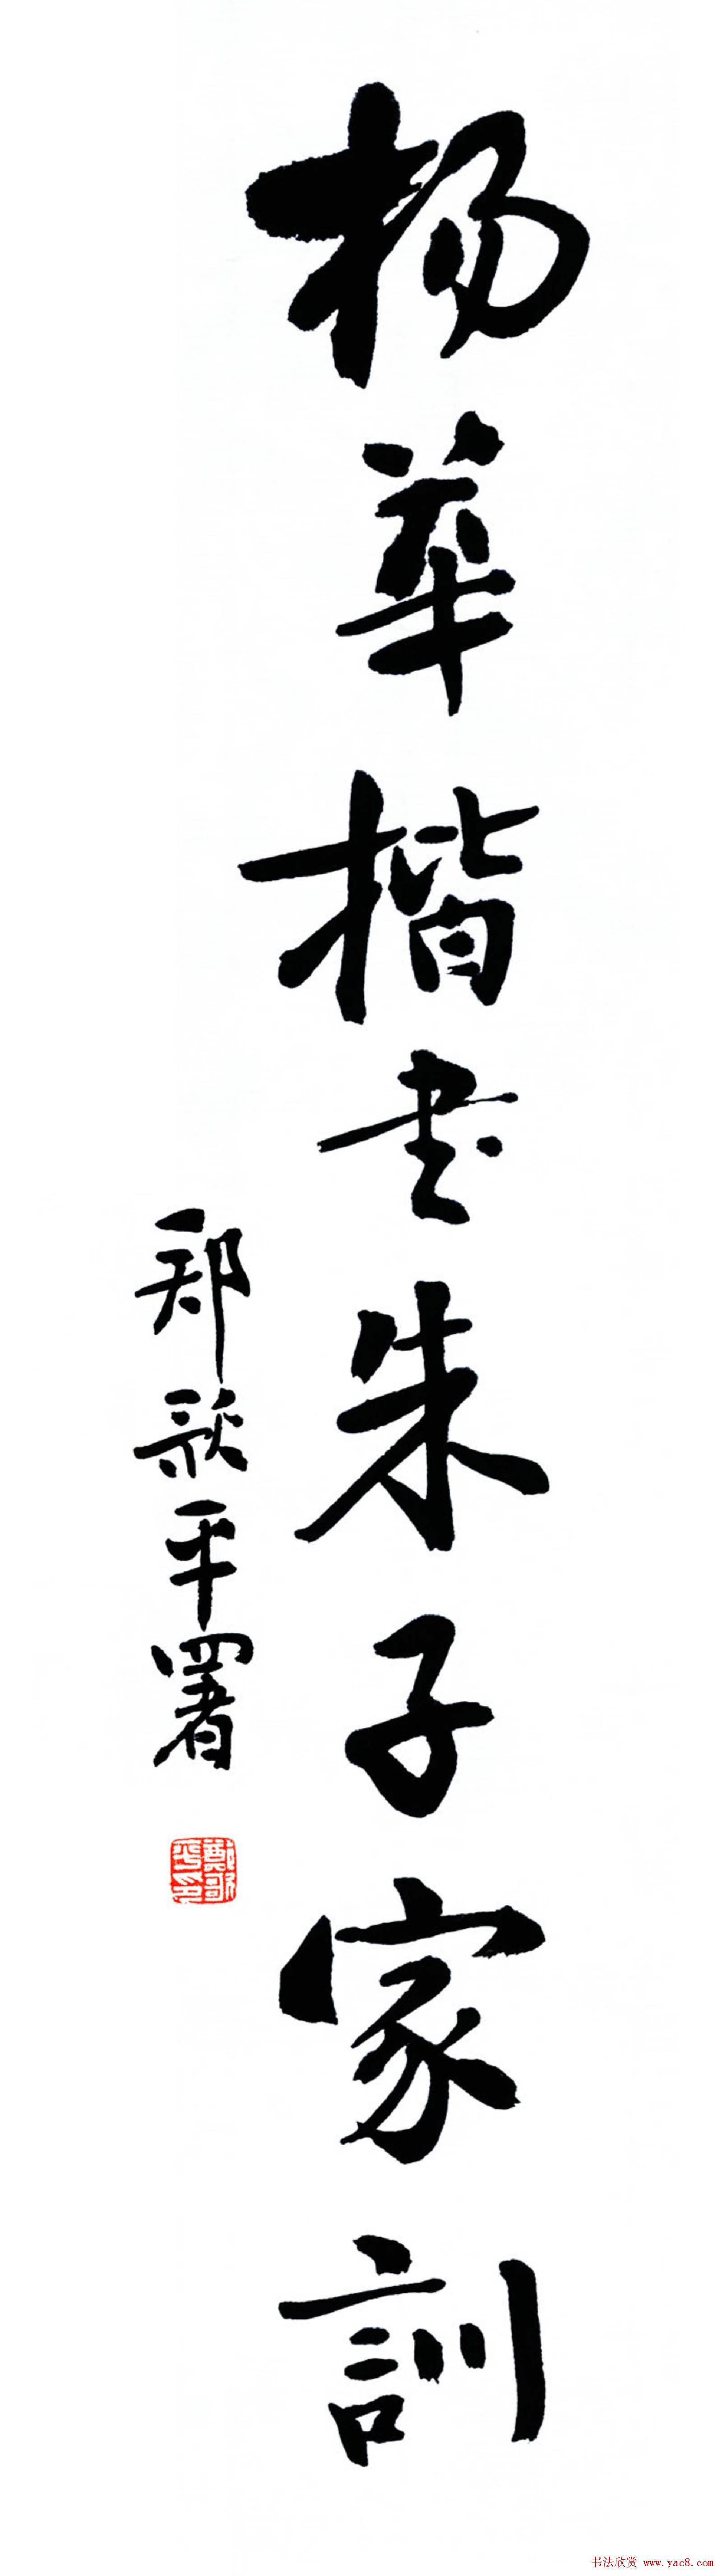 杨華楷书朱子家訓
郑歌平署
鄭歌平印
书法欣赏 www.yac8.com